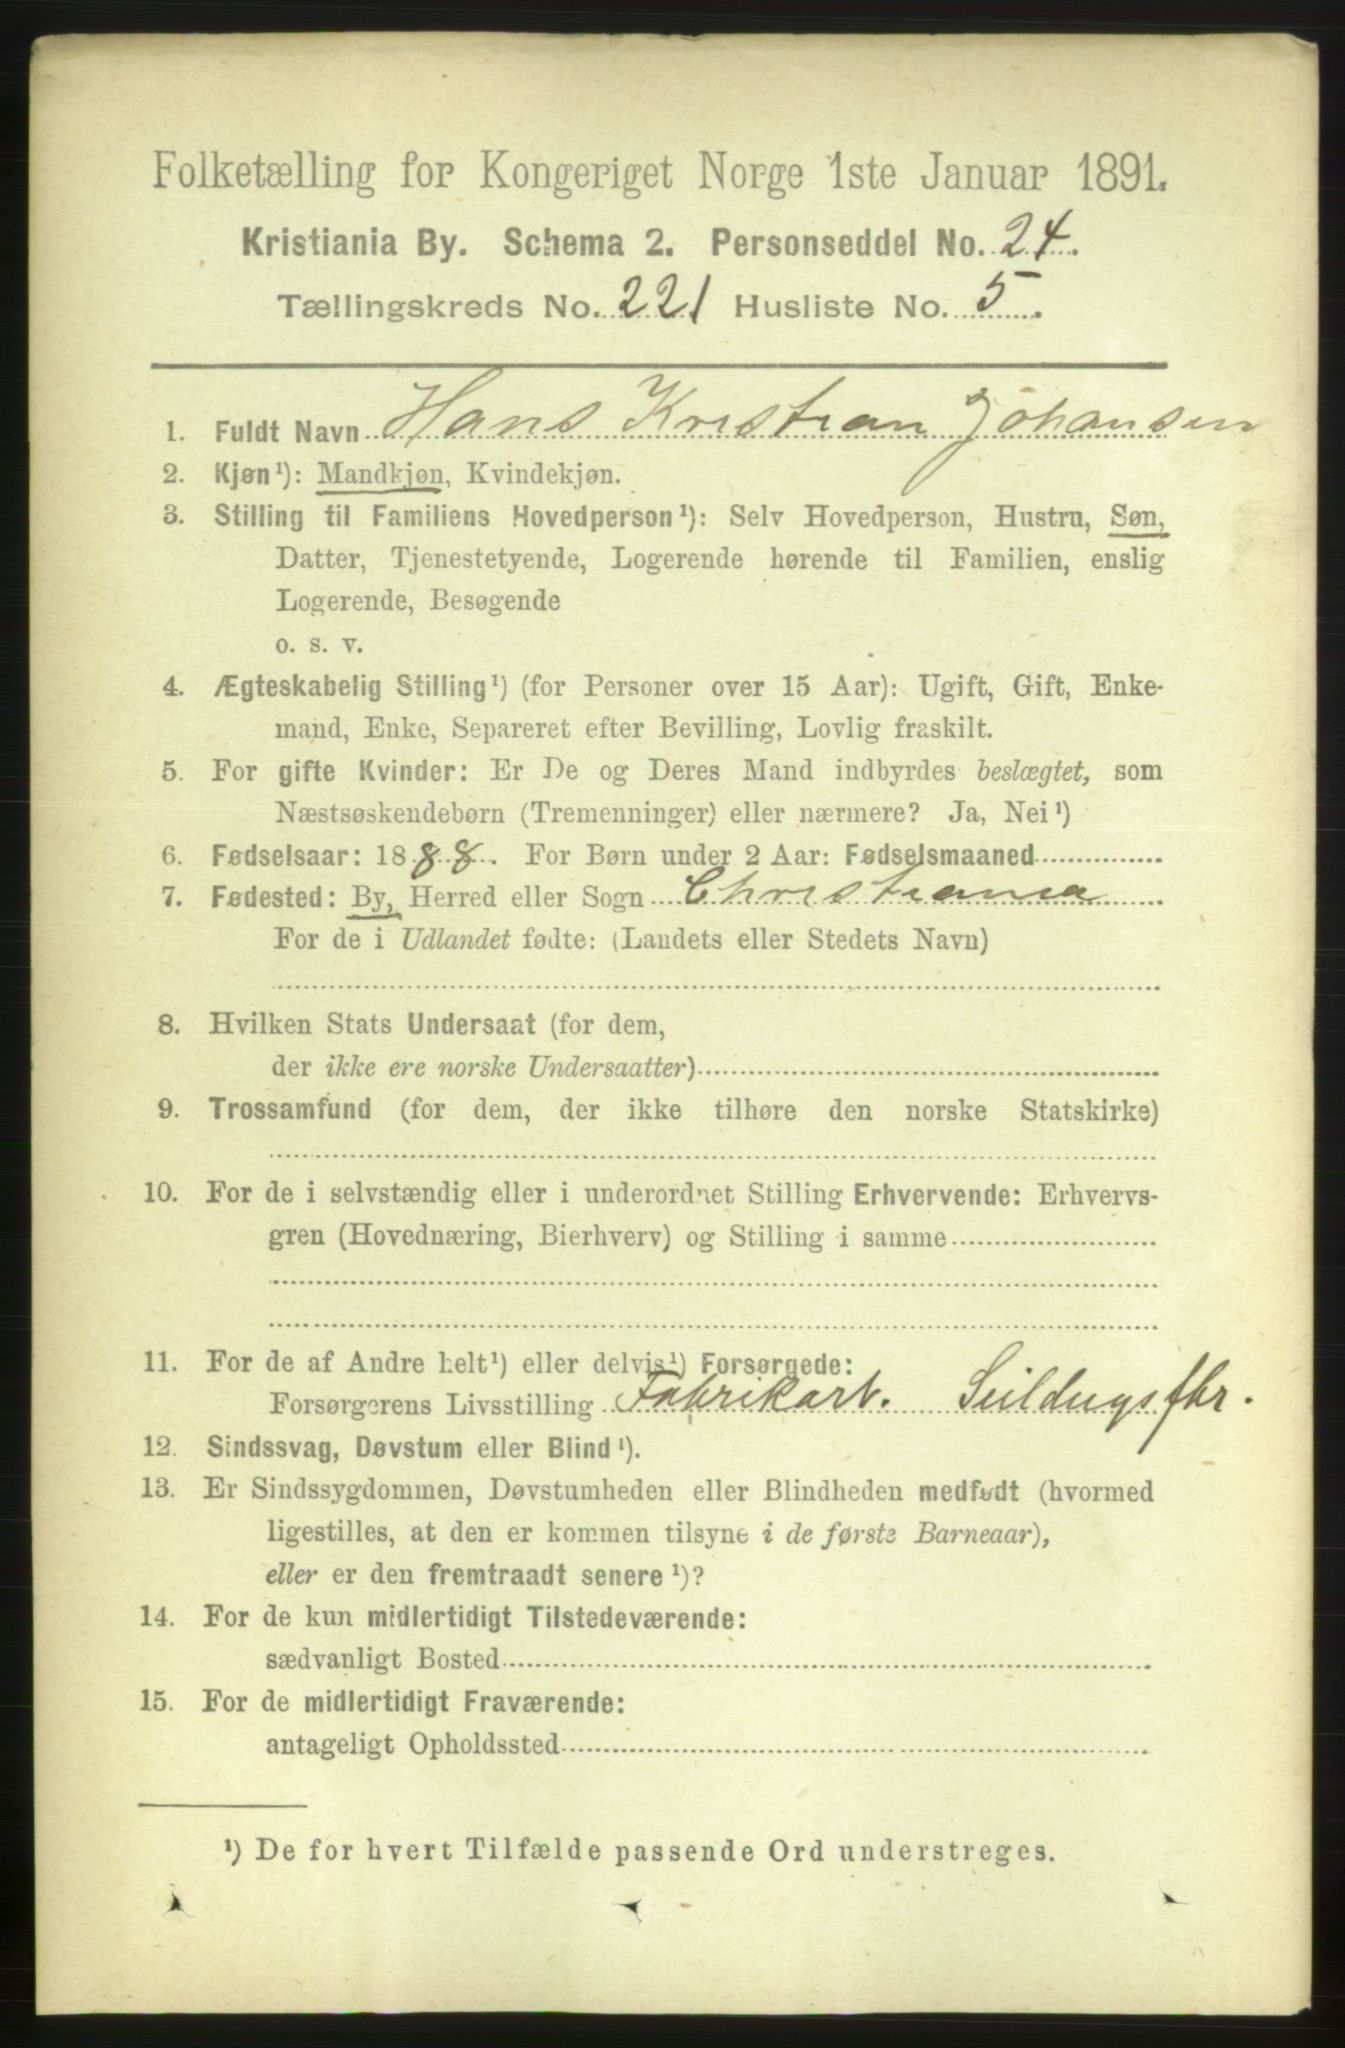 Folketælling for Kongeriget Norge 1ste Januar 1891.
Kristiania By. Schema 2. Personseddel No. 24.
Tællingskreds No. 221 Husliste No. 5.
1. Fuldt Navn Hans Kristian Johansen
2. Kjøn¹): Mandkjøn, Kvindekjøn.
3. Stilling til Familiens Hovedperson¹): Selv Hovedperson, Hustru, Søn,
Datter, Tjenestetyende, Logerende hørende til Familien, enslig
Logerende, Besøgende
o. s. v.
4. Ægteskabelig Stilling¹) (for Personer over 15 Aar): Ugift, Gift, Enke-
mand, Enke, Separeret efter Bevilling, Lovlig fraskilt.
5. For gifte Kvinder: Er De og Deres Mand indbyrdes beslægtet, som
Næstsøskendebørn (Tremenninger) eller nærmere? Ja, Nei¹)
6. Fødselsaar: 1888. For Børn under 2 Aar: Fødselsmaaned
7. Fødested: By, Herred eller Sogn Christiania
For de i Udlandet fødte: (Landets eller Stedets Navn)
8. Hvilken Stats Undersaat (for dem,
der ikke ere norske Undersaatter)
9. Trossamfund (for dem, der ikke tilhøre den norske Statskirke)
10. For de i selvstændig eller i underordnet Stilling Erhvervende: Erhvervs-
gren (Hovednæring, Bierhverv) og Stilling i samme
11. For de af Andre helt¹) eller delvis¹) Forsørgede:
Forsørgerens Livsstilling Fabrikarb. Seildugsfbr.
12. Sindssvag, Døvstum eller Blind¹).
13. Er Sindssygdommen, Døvstumheden eller Blindheden medfødt (hvormed
ligestilles, at den er kommen tilsyne i de første Barneaar),
eller er den fremtraadt senere¹)?
14. For de kun midlertidigt Tilstedeværende:
sædvanligt Bosted
15. For de midlertidigt Fraværende:
antageligt Opholdssted
¹) De for hvert Tilfælde passende Ord understreges.